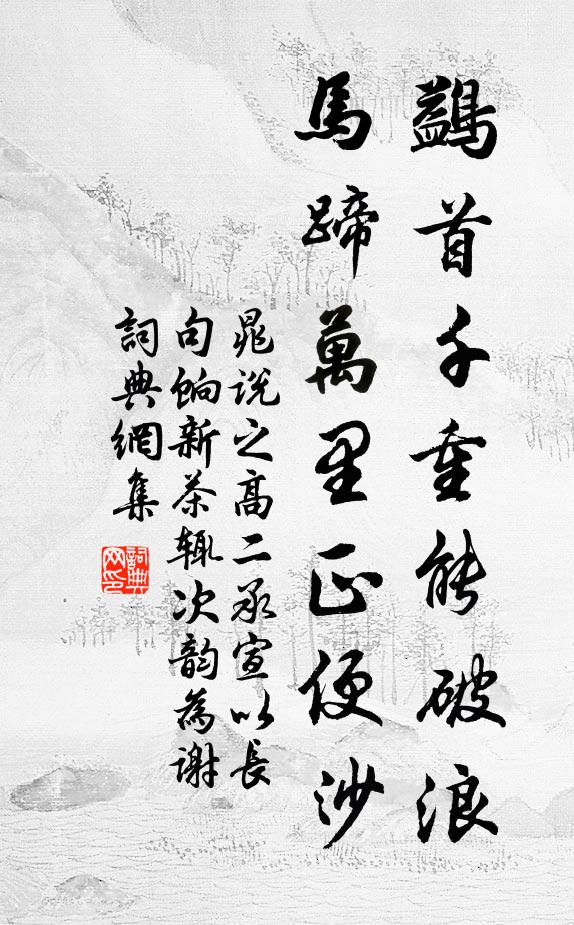 鷁首千重能破浪
馬蹄萬里正便沙
晁說之高二承宣以長
句餉新茶輒次韵為謝
詞典網集
詞典
网印